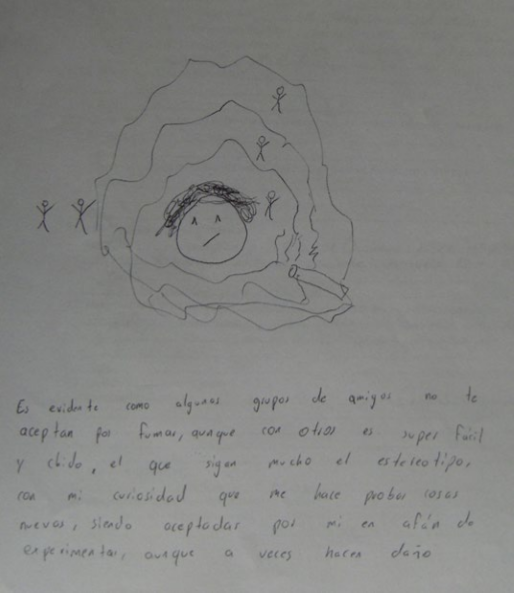 Es evidente como algunos grupos de amigos no te
aceptan por fumar, aunque con otros es super fácil
y chido, el que sigan mucho el estereotipo,
con mi curiosidad que me hace probar cosas
nuevas, siendo aceptadas por mi en afán de
experimentar, aunque a veces hacen daño